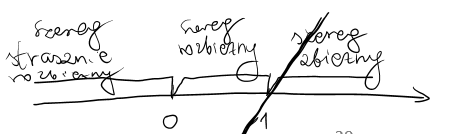 szereg
strasznie
rozbieżny
szereg
rozbieżny
szereg
zbieżny
0
1